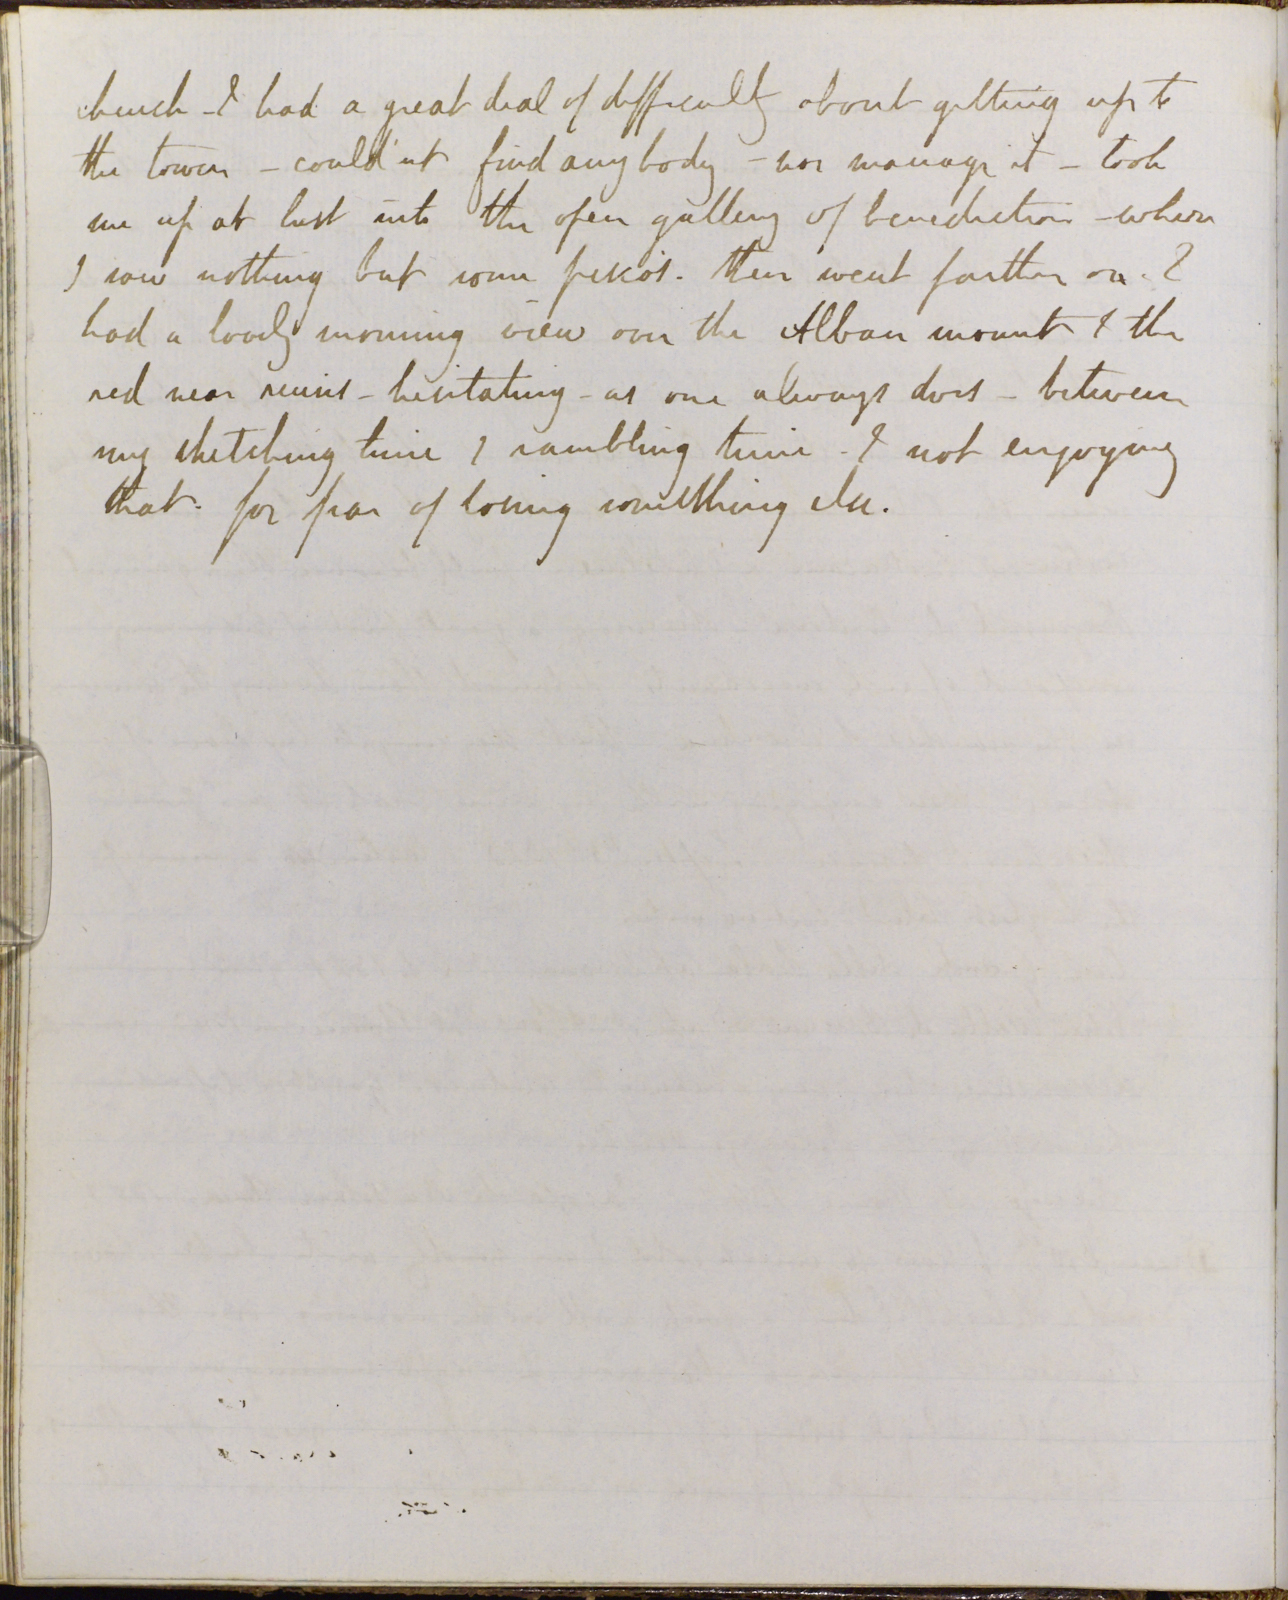 church - & had a great deal of difficulty about getting up to
the tower - could'nt find anybody - nor manage it - took
me up at last into the open gallery of benediction - where
I saw nothing but some frescos. then went farther on. &
had a lovely morning view over the Alban mount & the
red near ruins - hesitating - as one always does - between
my sketching time & rambling time - & not enjoying
that. for fear of losing something else.